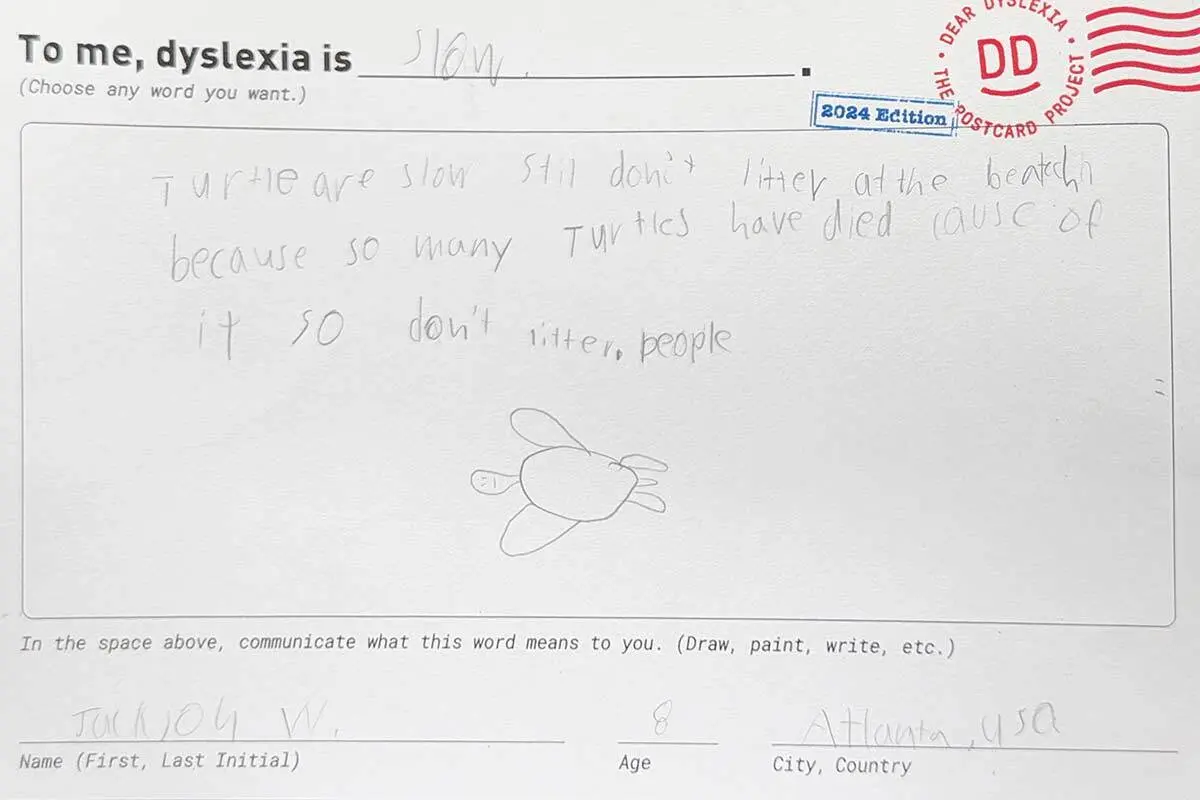 To me, dyslexia is slow.
(Choose any word you want.)
DEAR DYSLEXIA • THE POSTCARD PROJECT •
DD
2024 Edition
Turtle are slow still don't litter at the
because so many Turtles have died cause of
it so don't litter. people
In the space above, communicate what this word means to you. (Draw, paint, write, etc.)
W.
8
Atlanta, USA
Name (First, Last Initial)
Age
City, Country